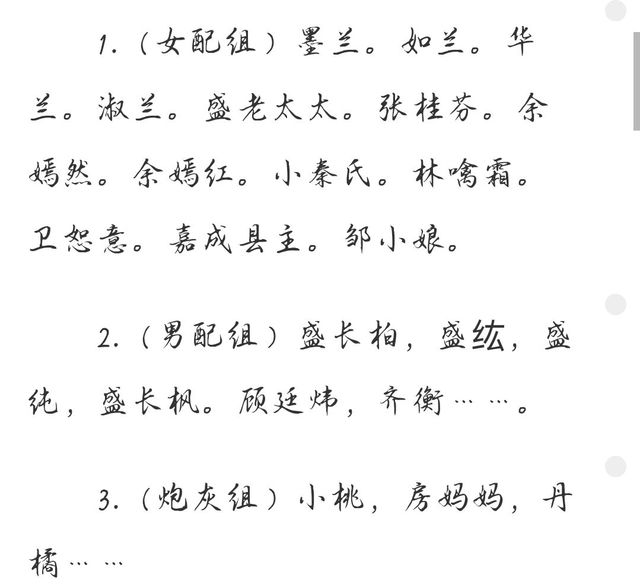 1.（女配组）墨兰。如兰。华
兰。淑兰。盛老太太。张桂芬。余
嫣然。余嫣红。小秦氏。林噙霜。
卫恕意。嘉成县主。邹小娘。
2.（男配组）盛长柏，盛纮，盛
纯，盛长枫。顾廷炜，齐衡……。
3.（炮灰组）小桃，房妈妈，丹
橘……